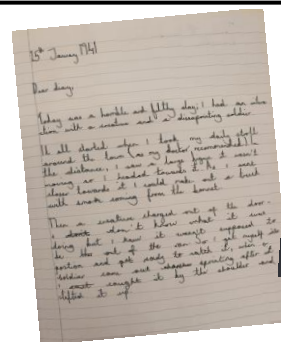 15th January 1941
Dear diary,
Today was a horrible and filthy day; I had an
with a creature and a soldier
It all started when I took my daily stroll
around the town (as my doctor recommended) in
the distance, I saw a large figure it wasn't
moving so I headed towards it. As I went
closer towards it I could make out a
with smoke coming from the
Then a creature charged out of the door.
I don't know what it was
doing but I knew it wasn't supposed to
be out of the so I got myself in
position and got ready to catch it, when a
soldier came out sprinting after it
I caught it by the shoulder and
lifted it up